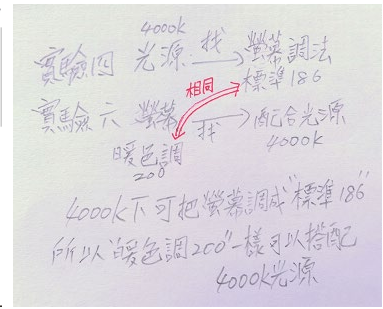 4000k
實驗四 光源 找→ 螢幕調法
標準186
相同
實驗六 螢幕 找→ 配合光源
暖色調 4000k
200
4000k下可把螢幕調成"標準186"
所以"暖色調200"一樣可以搭配
4000k光源